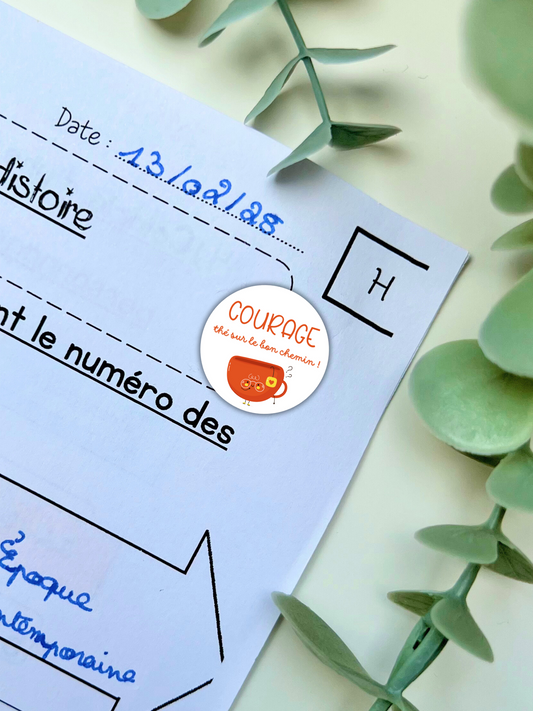 Date : 13/02/28
Histoire
H
COURAGE
thé sur le bon chemin !
nt le numéro des
Époque
ntemporaine